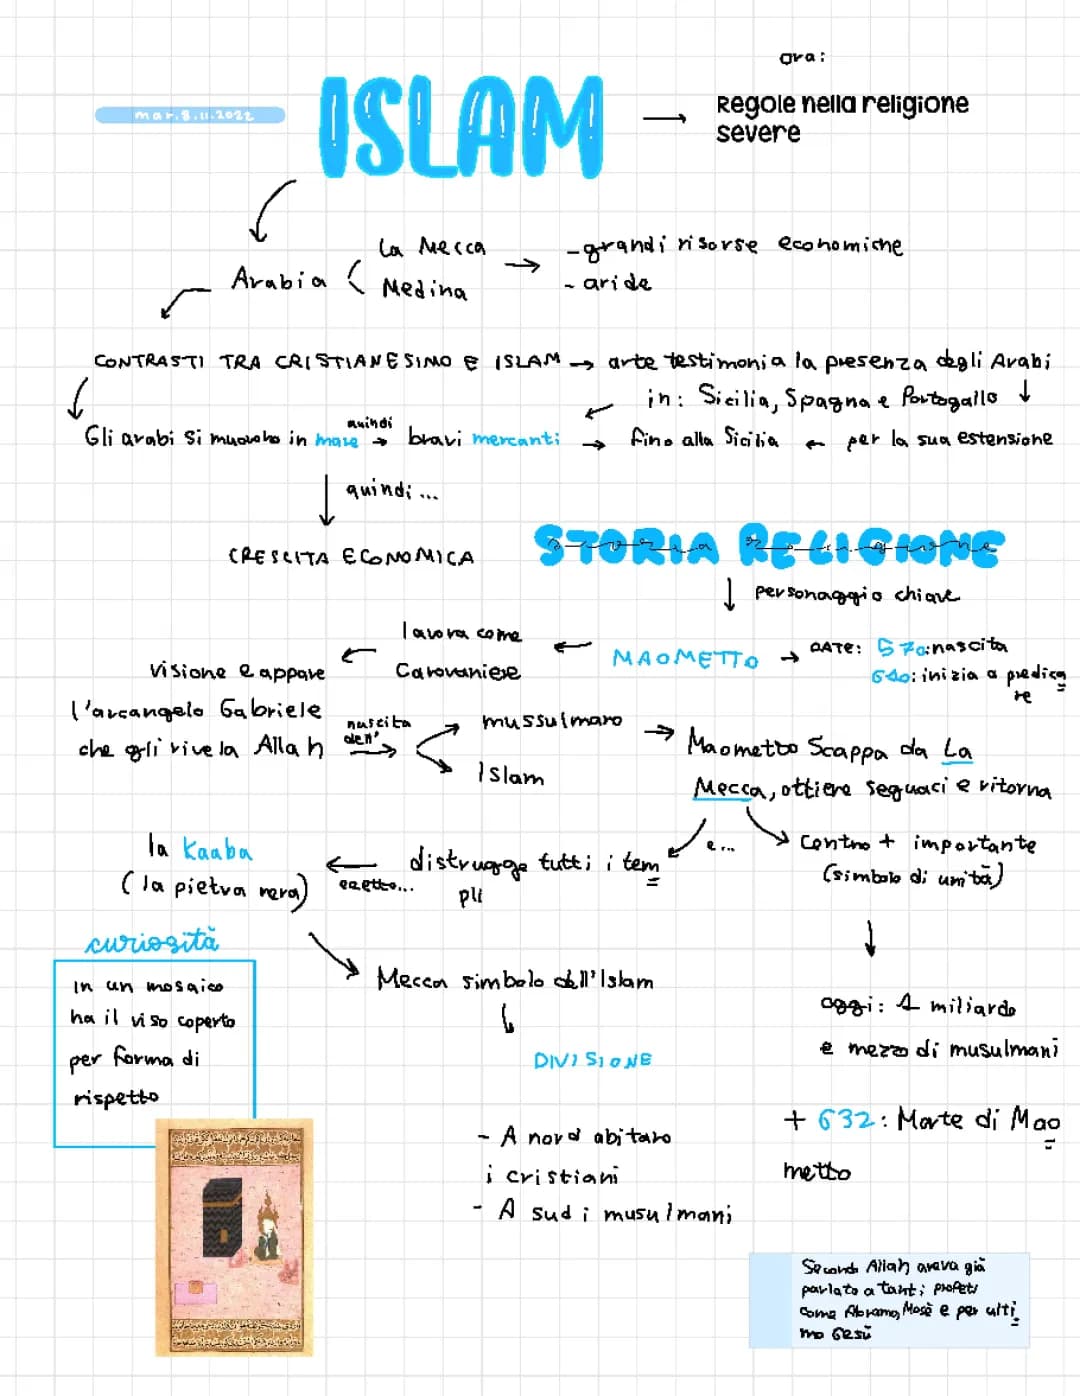 ora:
mar.8.11.2022
ISLAM
Regole nella religione
severe
La Mecca
Arabia
Medina
-grandi risorse economiche
- aride
CONTRASTI TRA CRISTIANESIMO E ISLAM → arte testimonia la presenza degli Arabi
in: Sicilia, Spagna e Portogallo
Gli arabi si muovono in mare quindi → bravi mercanti → fino alla Sicilia ← per la sua estensione
quindi...
CRESCITA ECONOMICA
STORIA RELIGIONE
personaggio chiave
MAOMETTO → DATE: 570:nascita
640: inizia a predica
re
lavora come
Carovaniese
visione e appare
l'arcangelo Gabriele
che gli rivela Allah
nascita
dell'
mussulmano
Islam
Maometto Scappa da La
Mecca, ottiene seguaci e ritorna
e...
Centro + importante
(simbolo di unità)
distrugge tutti i tem
pli
ecetto...
la Kaaba
(la pietra nera)
curiosità
In un mosaico
ha il viso coperto
per forma di
rispetto
Mecca simbolo dell'Islam
DIVISIONE
- A nord abitano
i cristiani
- A sud i musulmani
oggi: 1 miliardo
e mezzo di musulmani
+ 632: Morte di Mao
metto
Secondo Allah aveva già
parlato a tanti profeti
come Abramo, Mosè e per ulti
mo Gesù